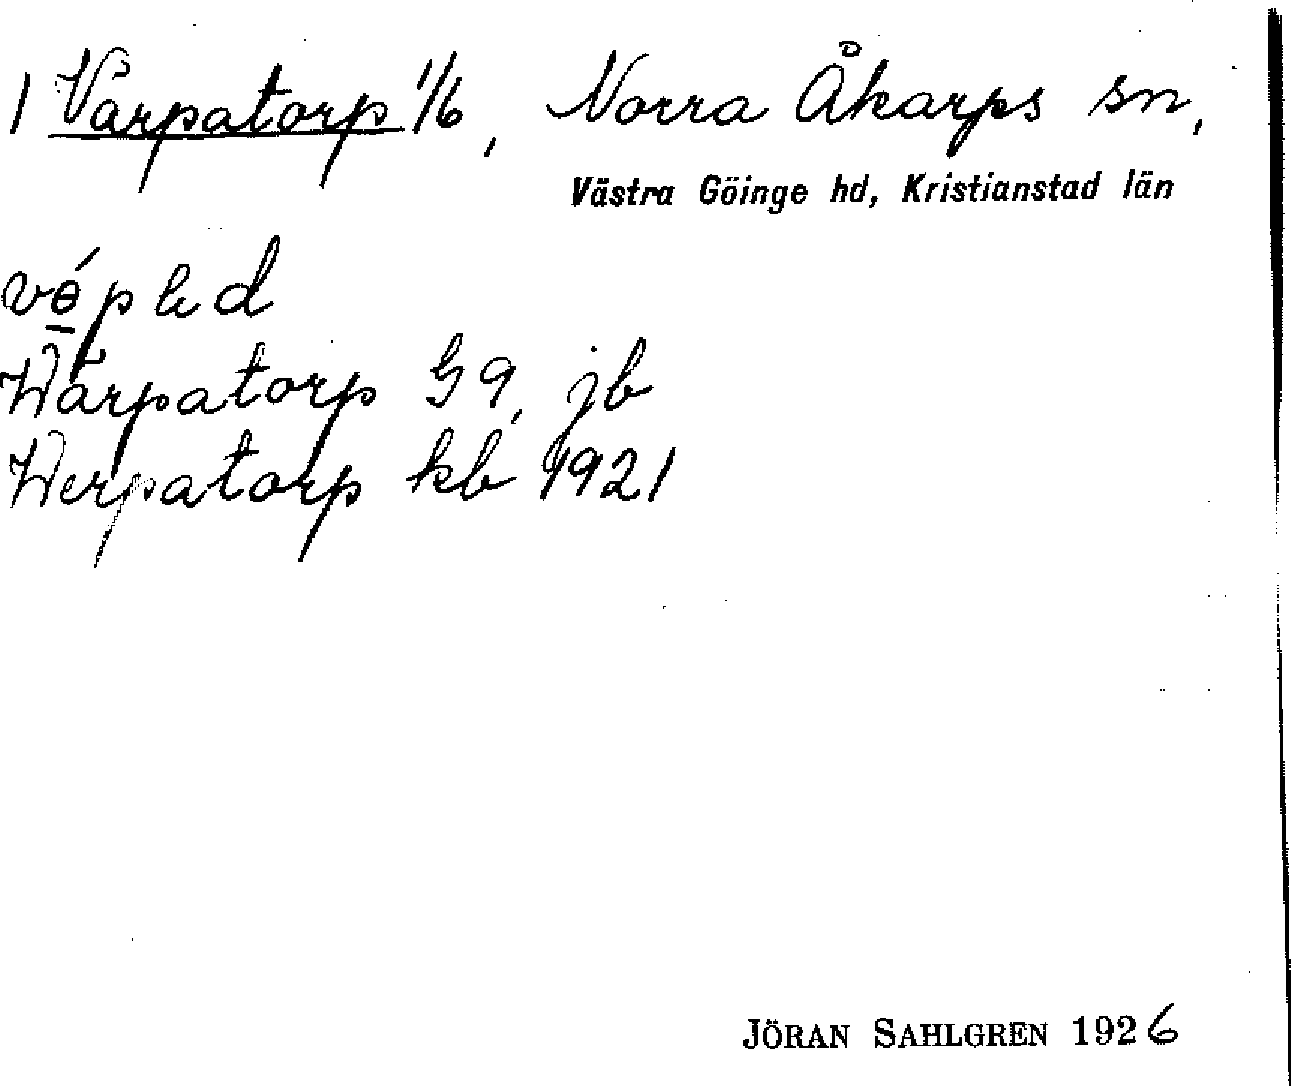 1 Varpatorp 1/6, Norra Åkarps sn,
Västra Göinge hd, Kristianstad län
Warpatorp G9, jb
Werpatorp kb 1921
JÖRAN SAHLGREN 1926